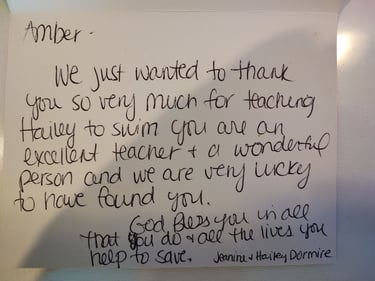 Amber -
We just wanted to thank
you so very much for teaching
Hailey to swim you are an
excellent teacher + a wonderful
person and we are very lucky
to have found you.
God Bless you in all
that you do + all the lives you
help to save.
Jeanine + Hailey Dormire